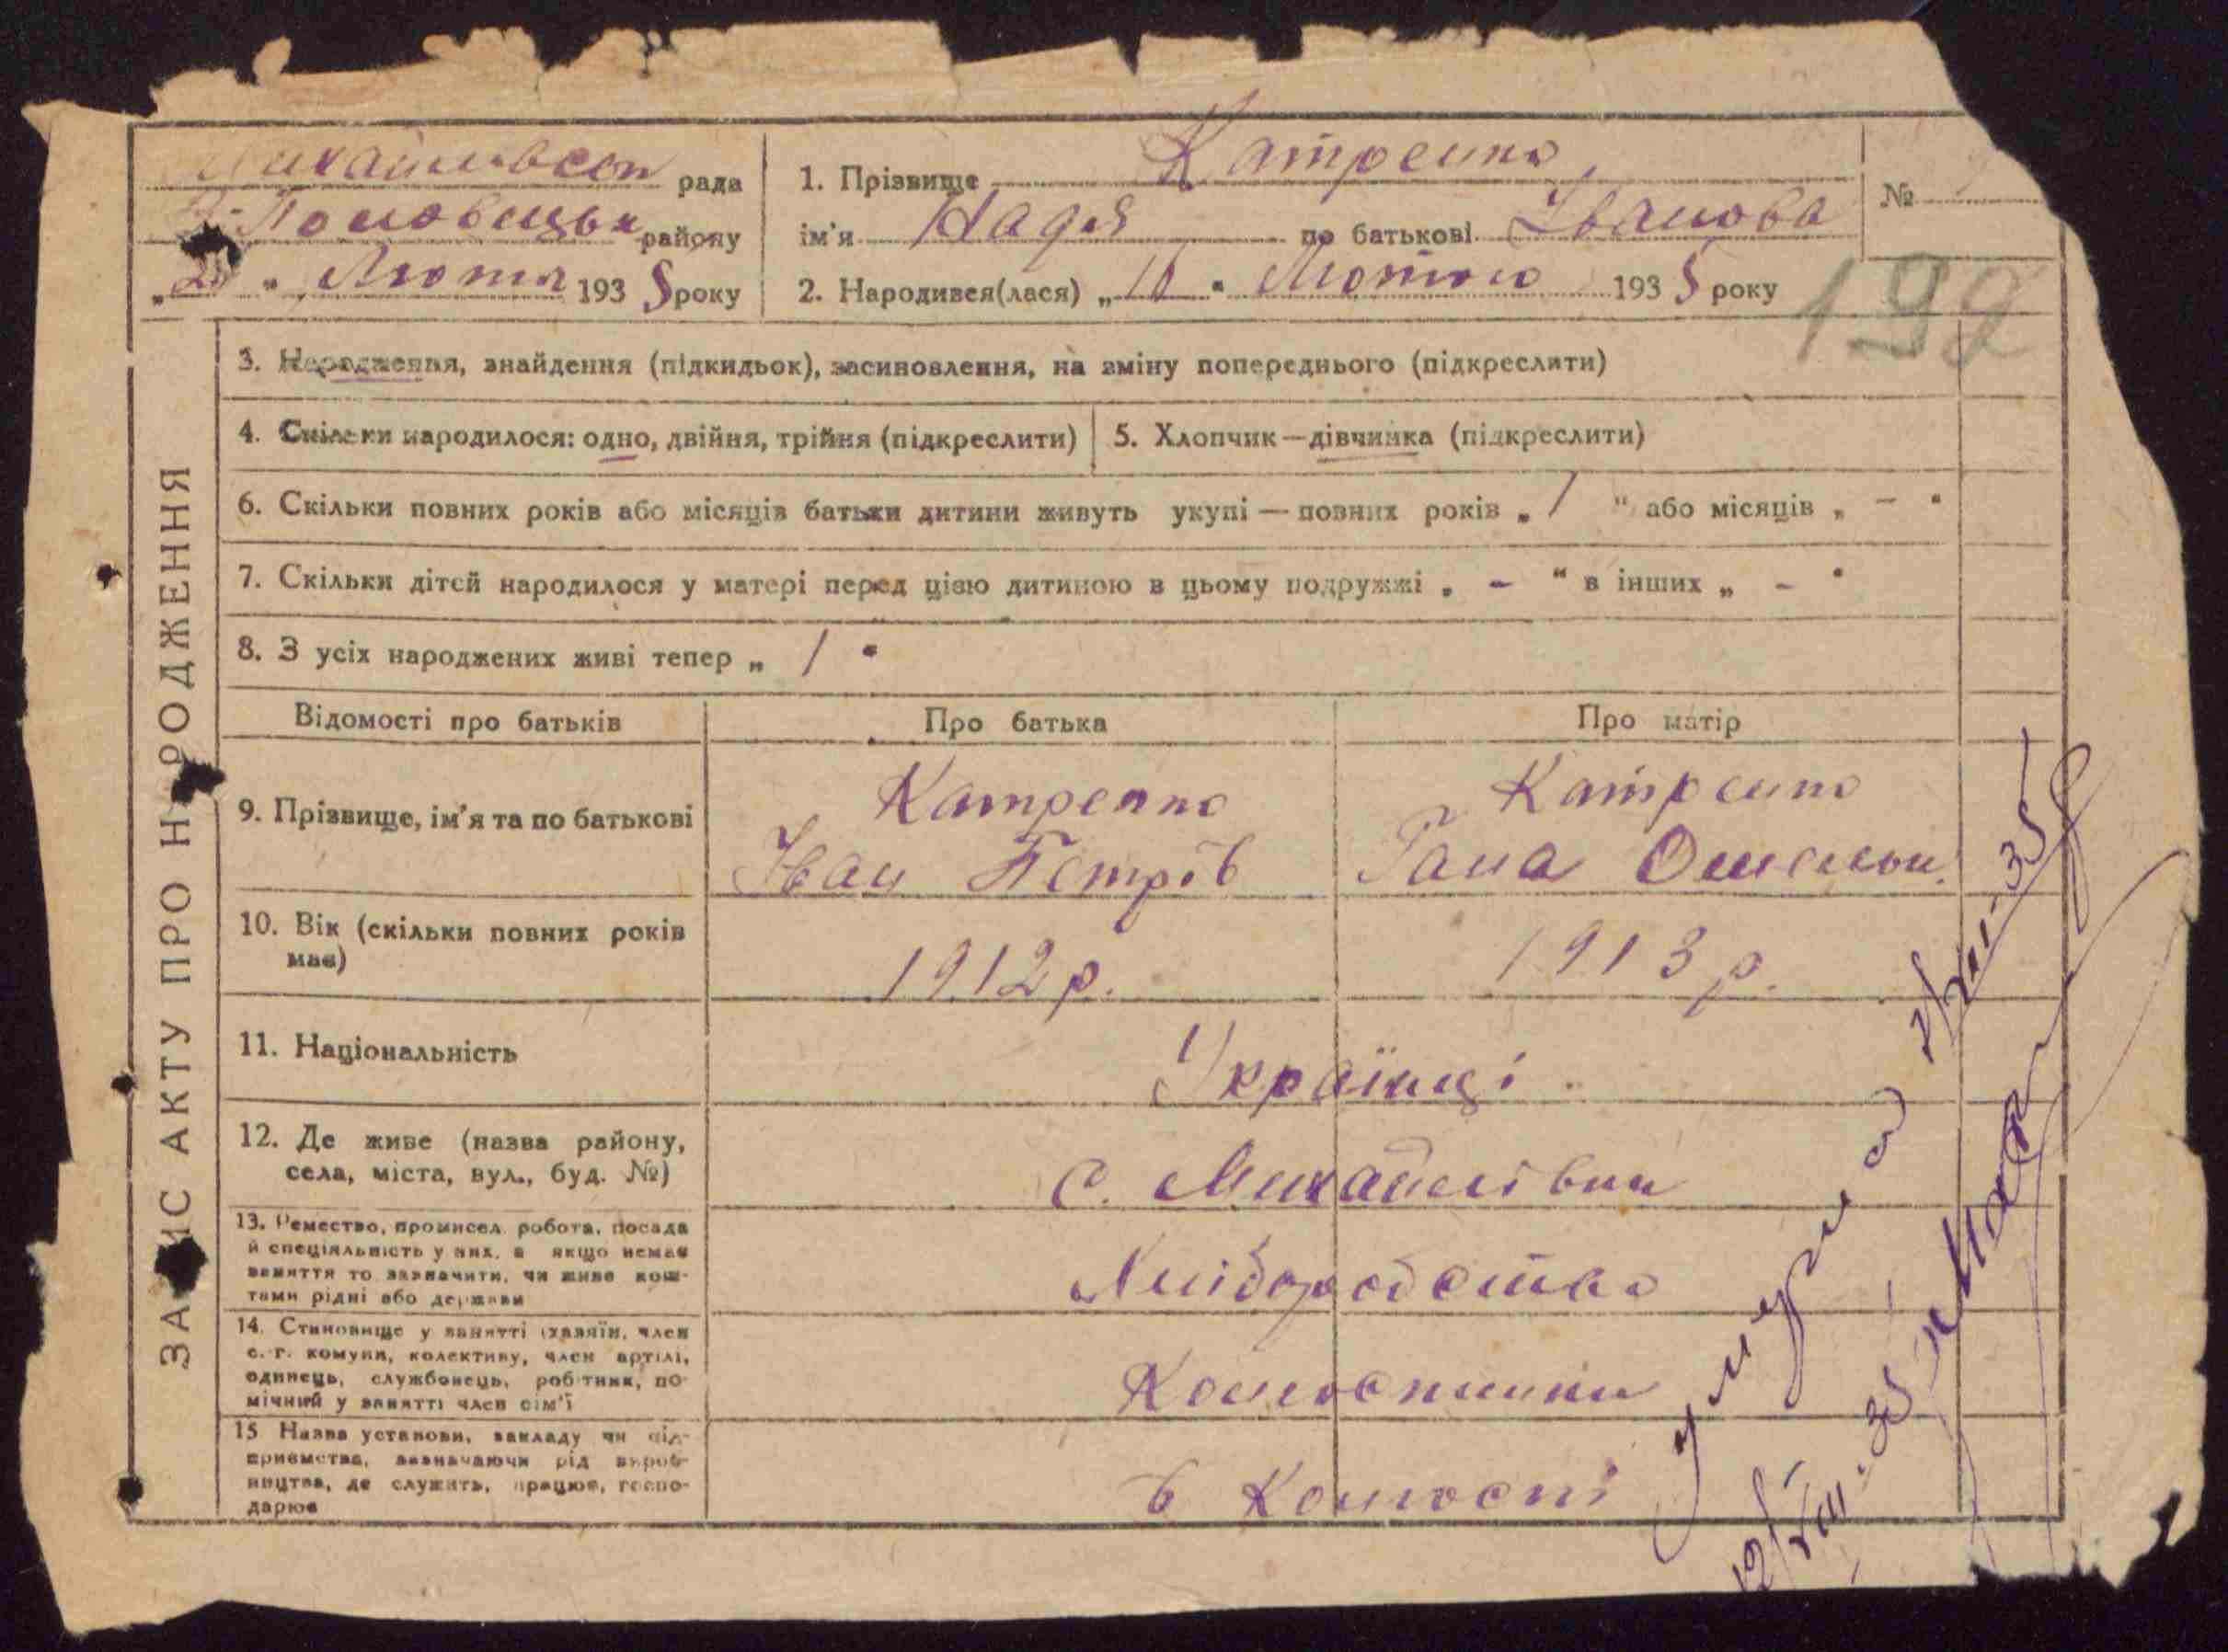 Михайлівська рада
Половецьк району
" " Лютня 1935 року
1. Прізвище Катренко
ім'я Надя по батькові Іванова
2. Народився(лася) „16" Лютого 1935 року
№
192
3. Народження, знайдення (підкидьок), засиновлення, на зміну попереднього (підкреслити)
4. Скільки народилося: одно, двійня, трійня (підкреслити)
5. Хлопчик—дівчинка (підкреслити)
6. Скільки повних років або місяців батьки дитини живуть укупі — повних років „ 1 " або місяців „ – "
7. Скільки дітей народилося у матері перед цією дитиною в цьому подружжі „ – " в інших „ – "
8. З усіх народжених живі тепер „ 1 "
ЗАПИС АКТУ ПРО НАРОДЖЕННЯ
Відомості про батьків
Про батька
Про матір
9. Прізвище, ім'я та по батькові
Катренко
Іван Петрів
Катренко
Гана Омельн.
10. Вік (скільки повних років
має)
1912 р.
1913 р.
11. Національність
Українці
12. Де живе (назва району,
села, міста, вул., буд. №)
с. Михайлівки
13. Ремество, промисел, робота, посада
й спеціяльність у них, а якщо немає
заняття то зазначити, чи живе кош-
тами рідні або держави
Хліборобство
14. Становище у занятті (хазяїн, член
с.-г. комуни, колективу, член артілі,
одинець, службовець, робітник, по-
мічний у занятті член сім'ї
Колгоспники
15 Назва установи, закладу чи під-
приємства, зазначаючи рід вироб-
ництва, де служить, працює, госпо-
дарює
в Колгоспі
умерла
12/VIII-35